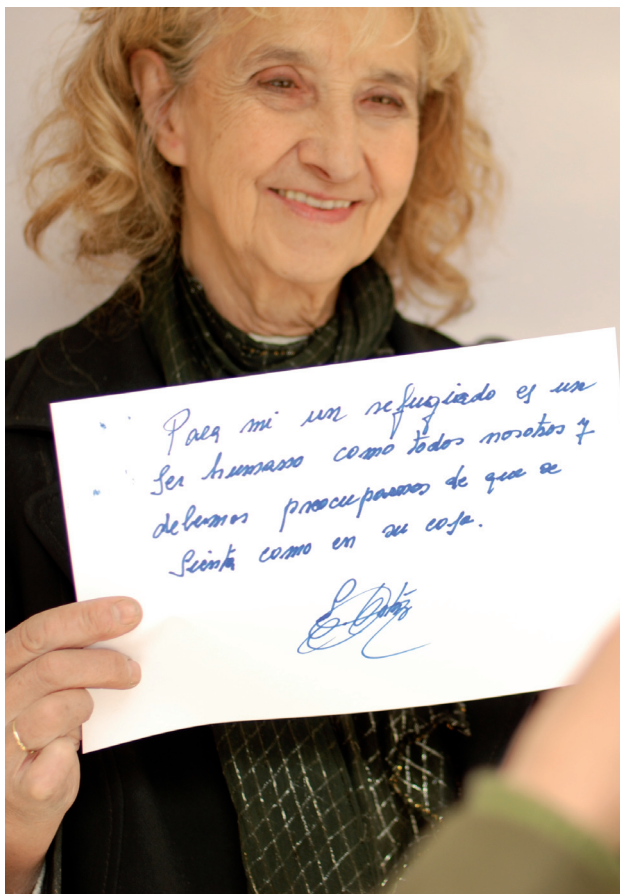 Para mi un refugiado es un
Ser humano como todos nosotros y
debemos preocuparnos de que se
sienta como en su casa.